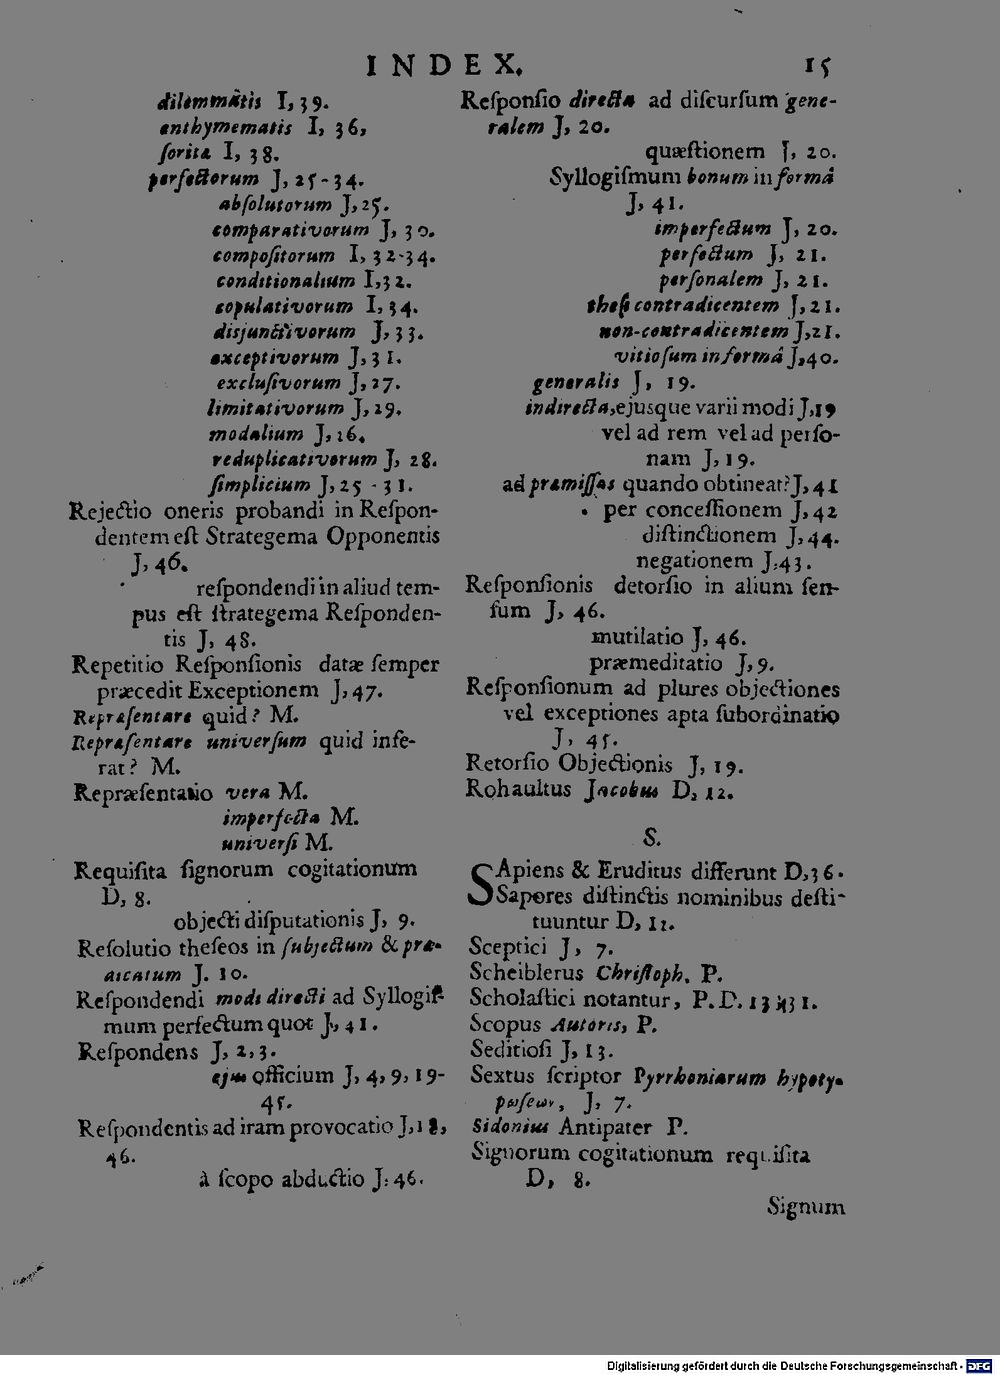 INDEX. 15
dilemmatis I, 39.
enthymematis I, 36,
ſorita I, 38.
perfectorum J, 25-34.
abſolutorum J, 25.
comparativorum J, 30.
compoſitorum I, 32-34.
conditionalium I, 32.
copulativorum I, 34.
disjunctivorum J, 33.
exceptivorum J, 31.
excluſivorum J, 27.
limitativorum J, 29.
modalium J, 26.
reduplicativorum J, 28.
ſimplicium J, 25 - 31.
Rejectio oneris probandi in Reſpon-
dentem eſt Strategema Opponentis
J, 46.
reſpondendi in aliud tem-
pus eſt ſtrategema Reſponden-
tis J, 48.
Repetitio Reſponſionis datæ ſemper
præcedit Exceptionem J, 47.
Repræſentare quid? M.
Repræſentare univerſum quid infe-
rat? M.
Repræſentatio vera M.
imperfecta M.
univerſi M.
Requiſita ſignorum cogitationum
D, 8.
objecti diſputationis J, 9.
Reſolutio theſeos in ſubjectum & præ-
dicatum J. 10.
Reſpondendi modi directi ad Syllogiſ-
mum perfectum quot J, 41.
Reſpondens J, 2, 3.
ejus officium J, 4, 9, 19-
45.
Reſpondentis ad iram provocatio J, 18,
46.
à ſcopo abductio J. 46.
Reſponſio directa ad diſcurſum gene-
ralem J, 20.
quæſtionem J, 20.
Syllogiſmum bonum in formâ
J, 41.
imperfectum J, 20.
perfectum J, 21.
perſonalem J, 21.
theſi contradicentem J, 21.
non-contradicentem J, 21.
vitioſum in formâ J, 40.
generalis J, 19.
indirecta, ejusque varii modi J, 19
vel ad rem vel ad perſo-
nam J, 19.
ad præmiſſas quando obtineat? J, 41
per conceſſionem J, 42
diſtinctionem J, 44.
negationem J. 43.
Reſponſionis detorſio in alium ſen-
ſum J, 46.
mutilatio J, 46.
præmeditatio J, 9.
Reſponſionum ad plures objectiones
vel exceptiones apta ſubordinatio
J, 45.
Retorſio Objectionis J, 19.
Rohaultus Jacobus D, 12.
S.
SApiens & Eruditus differunt D, 36.
Sapores diſtinctis nominibus deſti-
tuuntur D, 11.
Sceptici J, 7.
Scheiblerus Chriſtoph. P.
Scholaſtici notantur, P. D. 13 31.
Scopus Autoris, P.
Seditioſi J, 13.
Sextus ſcriptor Pyrrhoniarum hypoty-
pωſeων, J, 7.
Sidonius Antipater P.
Signorum cogitationum requiſita
D, 8.
Signum
Digitalisierung gefördert durch die Deutsche Forschungsgemeinschaft - DFG